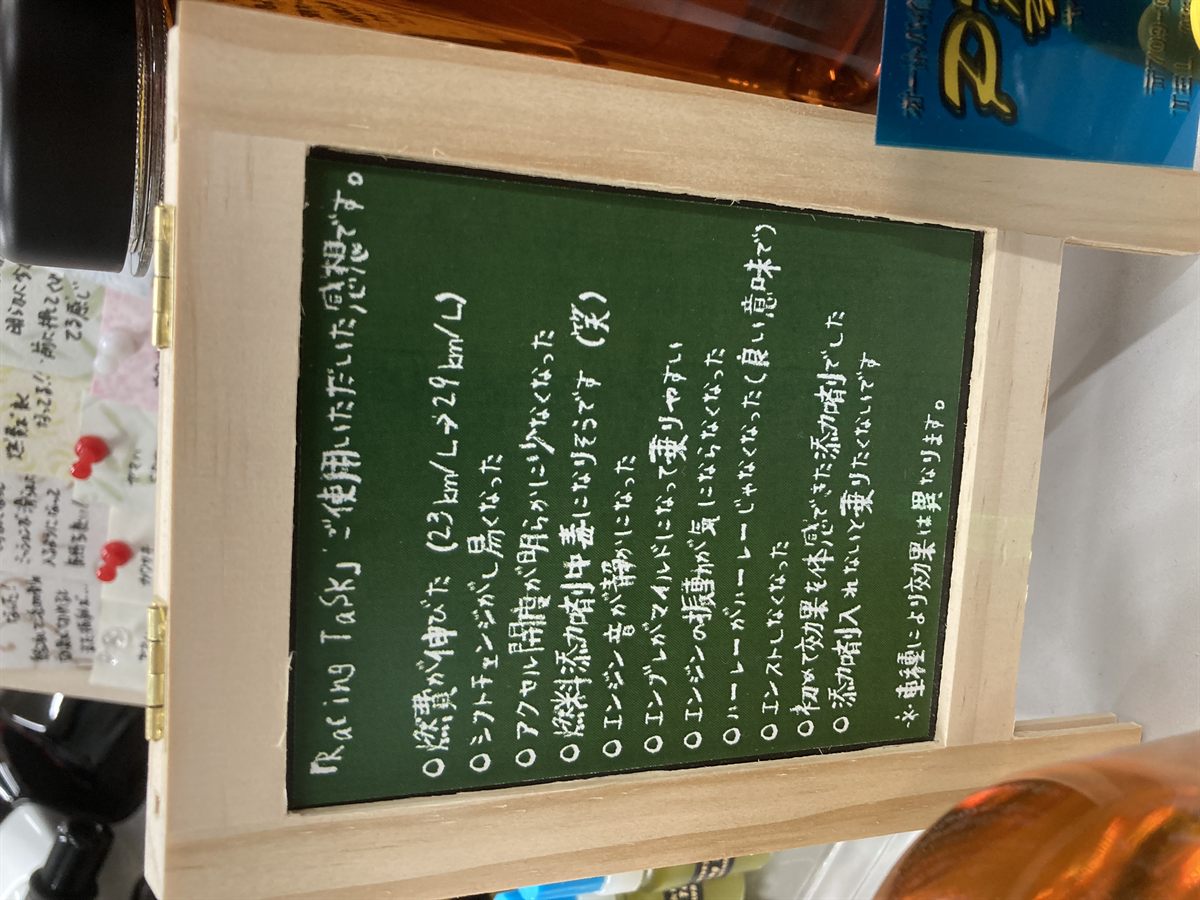 「Racing Task」ご使用いただいた感想です。
○燃費が伸びた (23km/L→29km/L)
○シフトチェンジがし易くなった
○アクセル開度が明らかに少なくなった
○燃料添加剤中毒になりそうです (笑)
○エンジン音が静かになった
○エンブレがマイルドになって乗りやすい
○エンジンの振動が気にならなくなった
○ハーレーがハーレーじゃなくなった(良い意味で)
○エンストしなくなった
○初めて効果を体感できた添加剤でした
○添加剤入れないと乗りたくないです
※車種により効果は異なります。